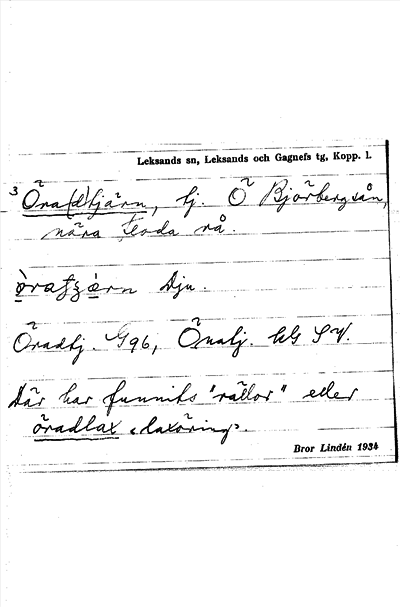 Leksands sn, Leksands och Gagnefs tg, Kopp. l.
3 Öra(d)tjärn, tj. Ö Björbergsån,
nära Floda rå.
Dju.
Öradtj. G96, Öratj. SV.
Där har funnits "rällor" eller
öradlax "laxöring".
Bror Lindén 1934